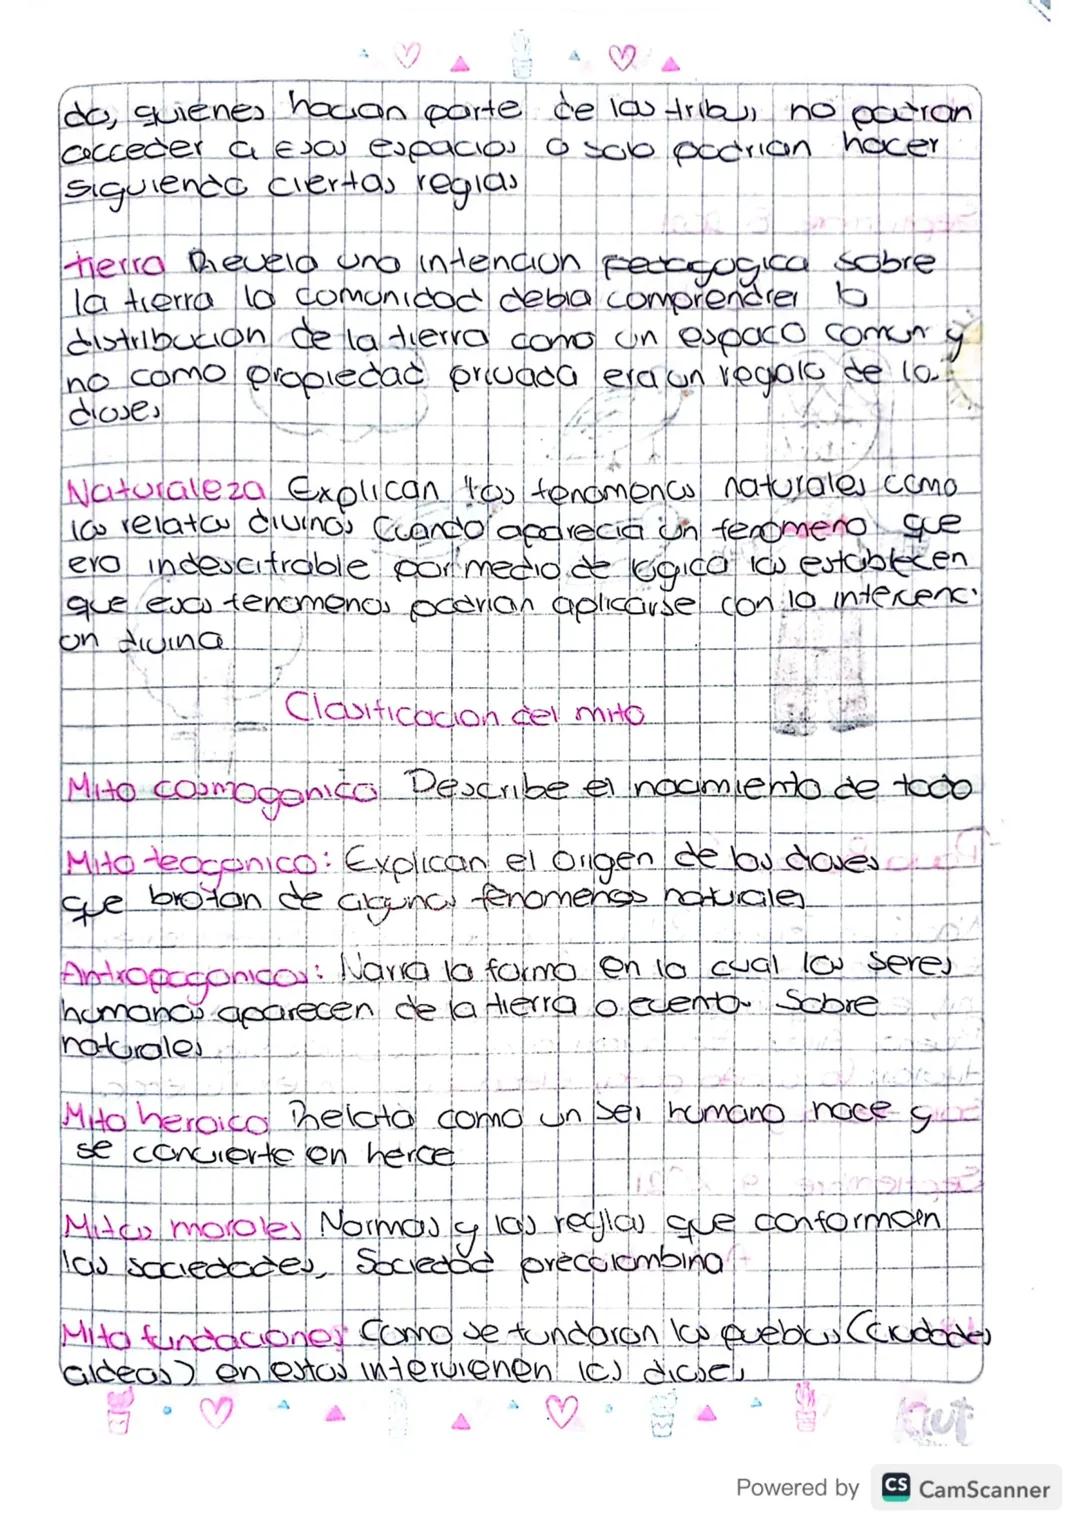 da, quienes hacian parte de las tribus no podrian
acceder a esas espacios o solo podrian hacer
siguiendo ciertas reglas
tierra Revela una intencion pedagogica sobre
la tierra la comunidad debia comprender la
distribucion de la tierra como un espaco comun y
no como propiedad privada era un regalo de los
dioses
Naturaleza Explican los fenomenos naturales como
los relatos divinos Cuando aparecia un fenomeno que
era indescifrable por medio de logica los establecen
que esos fenomenos podrian aplicarse con la intervenci
on divina
Clasificacion del mito
Mito cosmogonico Describe el nacimiento de todo
Mito teogonico: Explican el origen de los dioses
que brotan de algunos fenomenos naturales
Antropogonicos: Narra la forma en la cual los seres
humanos aparecen de la tierra o evento sobre
naturales
Mito heroico Relata como un ser humano nace y
se convierte en heroe
Mitos morales Normas y las reglas que conforman
las sociedades, Sociedad precolombina
Mito fundaciones Como se fundaron los pueblos (ciudades
aldeas) en estos intervienen los dioses
Kiut
Powered by CS CamScanner